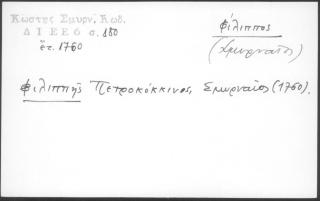 Κωστής Σμυρν. Κωδ.
ΔΙΕΕ6 σ. 180
ἔτ. 1760
Φίλιππος
(Σμυρναῖος)
Φιλιππῆς Πετροκόκκινος, Σμυρναῖος (1760).